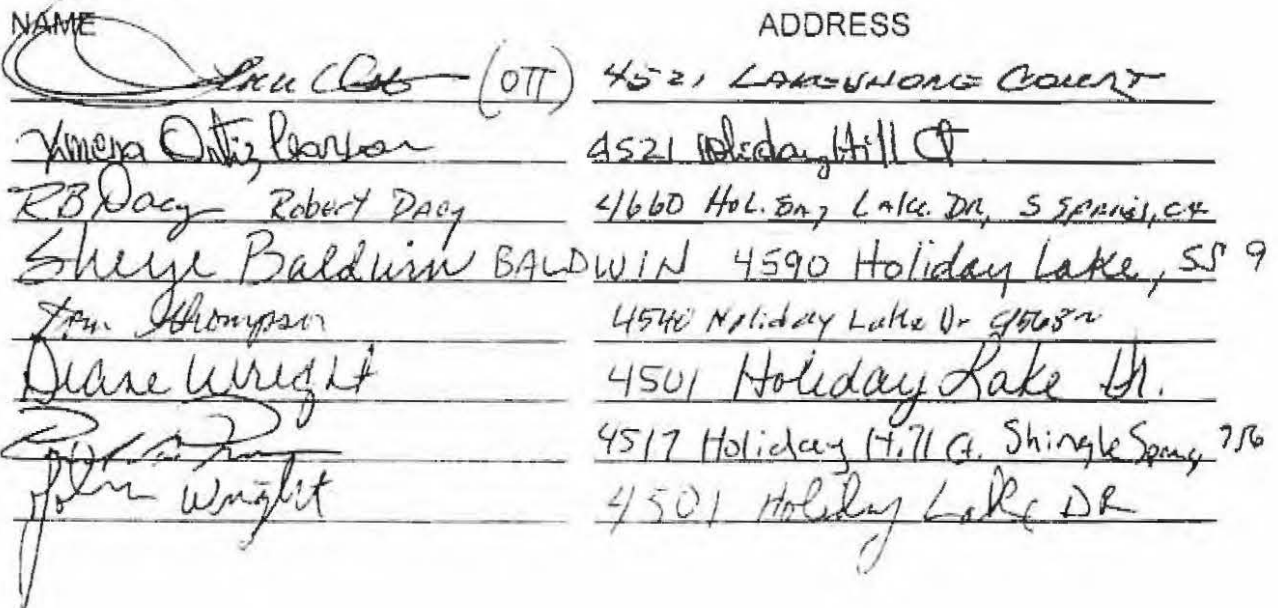 NAME ADDRESS
(OTT) 4521 LAKESHORE COURT
Ximena Ortiz Pearson 4521 Holiday Hill Ct
RB Dacy Robert DACY 4660 HOL. DAY LAKE. DR, S SPRINGS, CA
Sherye Baldwin BALDWIN 4590 Holiday Lake, SS 9
Tom Thompson 4540 Holiday Lake Dr 95682
Diane Wright 4501 Holiday Lake Dr.
4517 Holiday Hill Ct. Shingle Springs 956
John Wright 4501 Holiday Lake DR